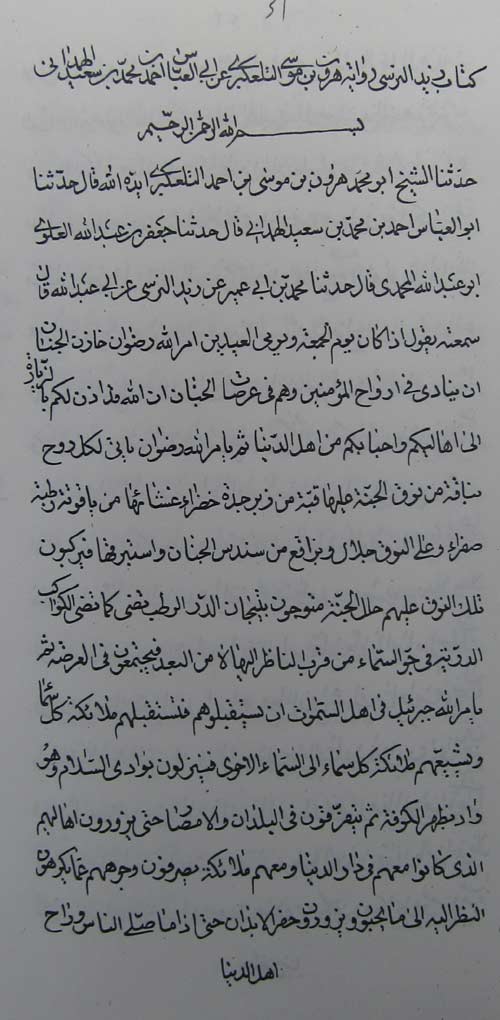 كتاب زيد النرسي رواية هرون بن موسى التلعكبرى عن ابى العباس احمد بن محمد بن سعيد الهمدانى
بسم الله الرحمن الرحيم
حدثنا الشيخ ابو محمد هرون بن موسى بن احمد التلعكبرى ايده الله قال حدثنا
ابو العباس احمد بن محمد بن سعيد الهمدانى قال حدثنا جعفر بن عبد الله العلوى
ابو عبد الله المحمدى قال حدثنا محمد بن ابى عمير عن زيد النرسى عن ابى عبد الله قال
سمعته يقول اذا كان يوم الجمعة ويومى العيدين امر الله رضوان خازن الجنان
ان ينادى فى ارواح المؤمنين وهم فى عرصات الجنان ان الله قد اذن لكم بالزيارة
الى اهاليكم واحبابكم من اهل الدنيا ثم يامر الله رضوان ياتى لكل روح
بناقة من نوق الجنة عليها قبة من زبرجدة خضراء غشاءها من ياقوتة رطبة
صفراء وعلى النوق جلال وبراقع من سندس الجنان واستبرقها فيركبون
تلك النوق عليهم حلل الجنة متوجون بتيجان الدر الرطب تضى كما تضى الكواكب
الدرية فى جو السماء من قرب الناظر اليها لا من البعد فيجتمعون فى العرصة ثم
يامر الله جبرئيل فى اهل السموات ان يستقبلوهم فتستقبلهم ملائكة كل سماء
وتشيعهم ملائكة كل سماء الى السماء الاخرى فينزلون بوادى السلام وهو
واد بظهر الكوفة ثم يتفرقون فى البلدان والامصار حتى يزورون اهاليهم
الذى كانوا معهم فى دار الدنيا ومعهم ملائكة يصرفون وجوههم عما يكرهون
النظر اليه الى ما يحبون ويزورون حفر الابدان حتى اذا ما صلى الناس وراح
اهل الدنيا